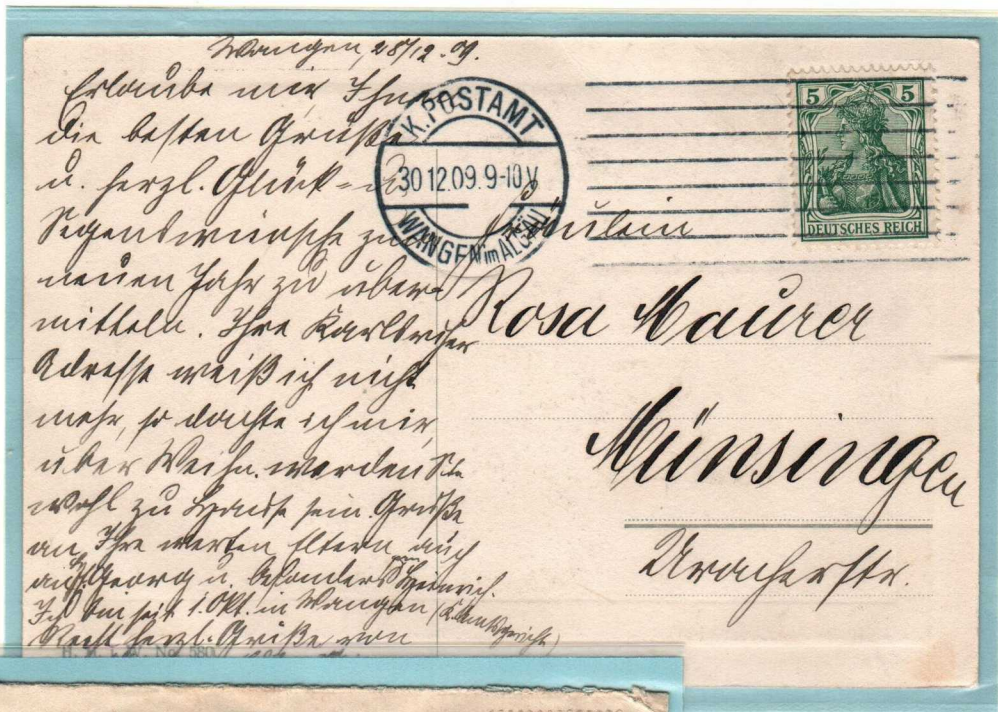 Wangen, 28/12.09.
Erlaube mir, Ihnen
die besten Grüße
u. herzl. Glück- u
Segenswünsche zum
neuen Jahr zu über-
mitteln. Ihre Karlsruher
Adresse weiß ich nicht
mehr, so dachte ich mir,
über Weihn. werden Sie
wohl zu Hause sein. Grüße
an Ihre werten Eltern, auch
Georg u. besonders Heinrich.
Ich bin seit 1. Okt. in Wangen (K. Amtsgericht)
Recht herzl. Grüße von
K. POSTAMT
30 12.09. 9-10 V
WANGEN im ALLGÄU
5 5
DEUTSCHES REICH
Fräulein
Rosa Maurer
Münsingen
Uracherstr.